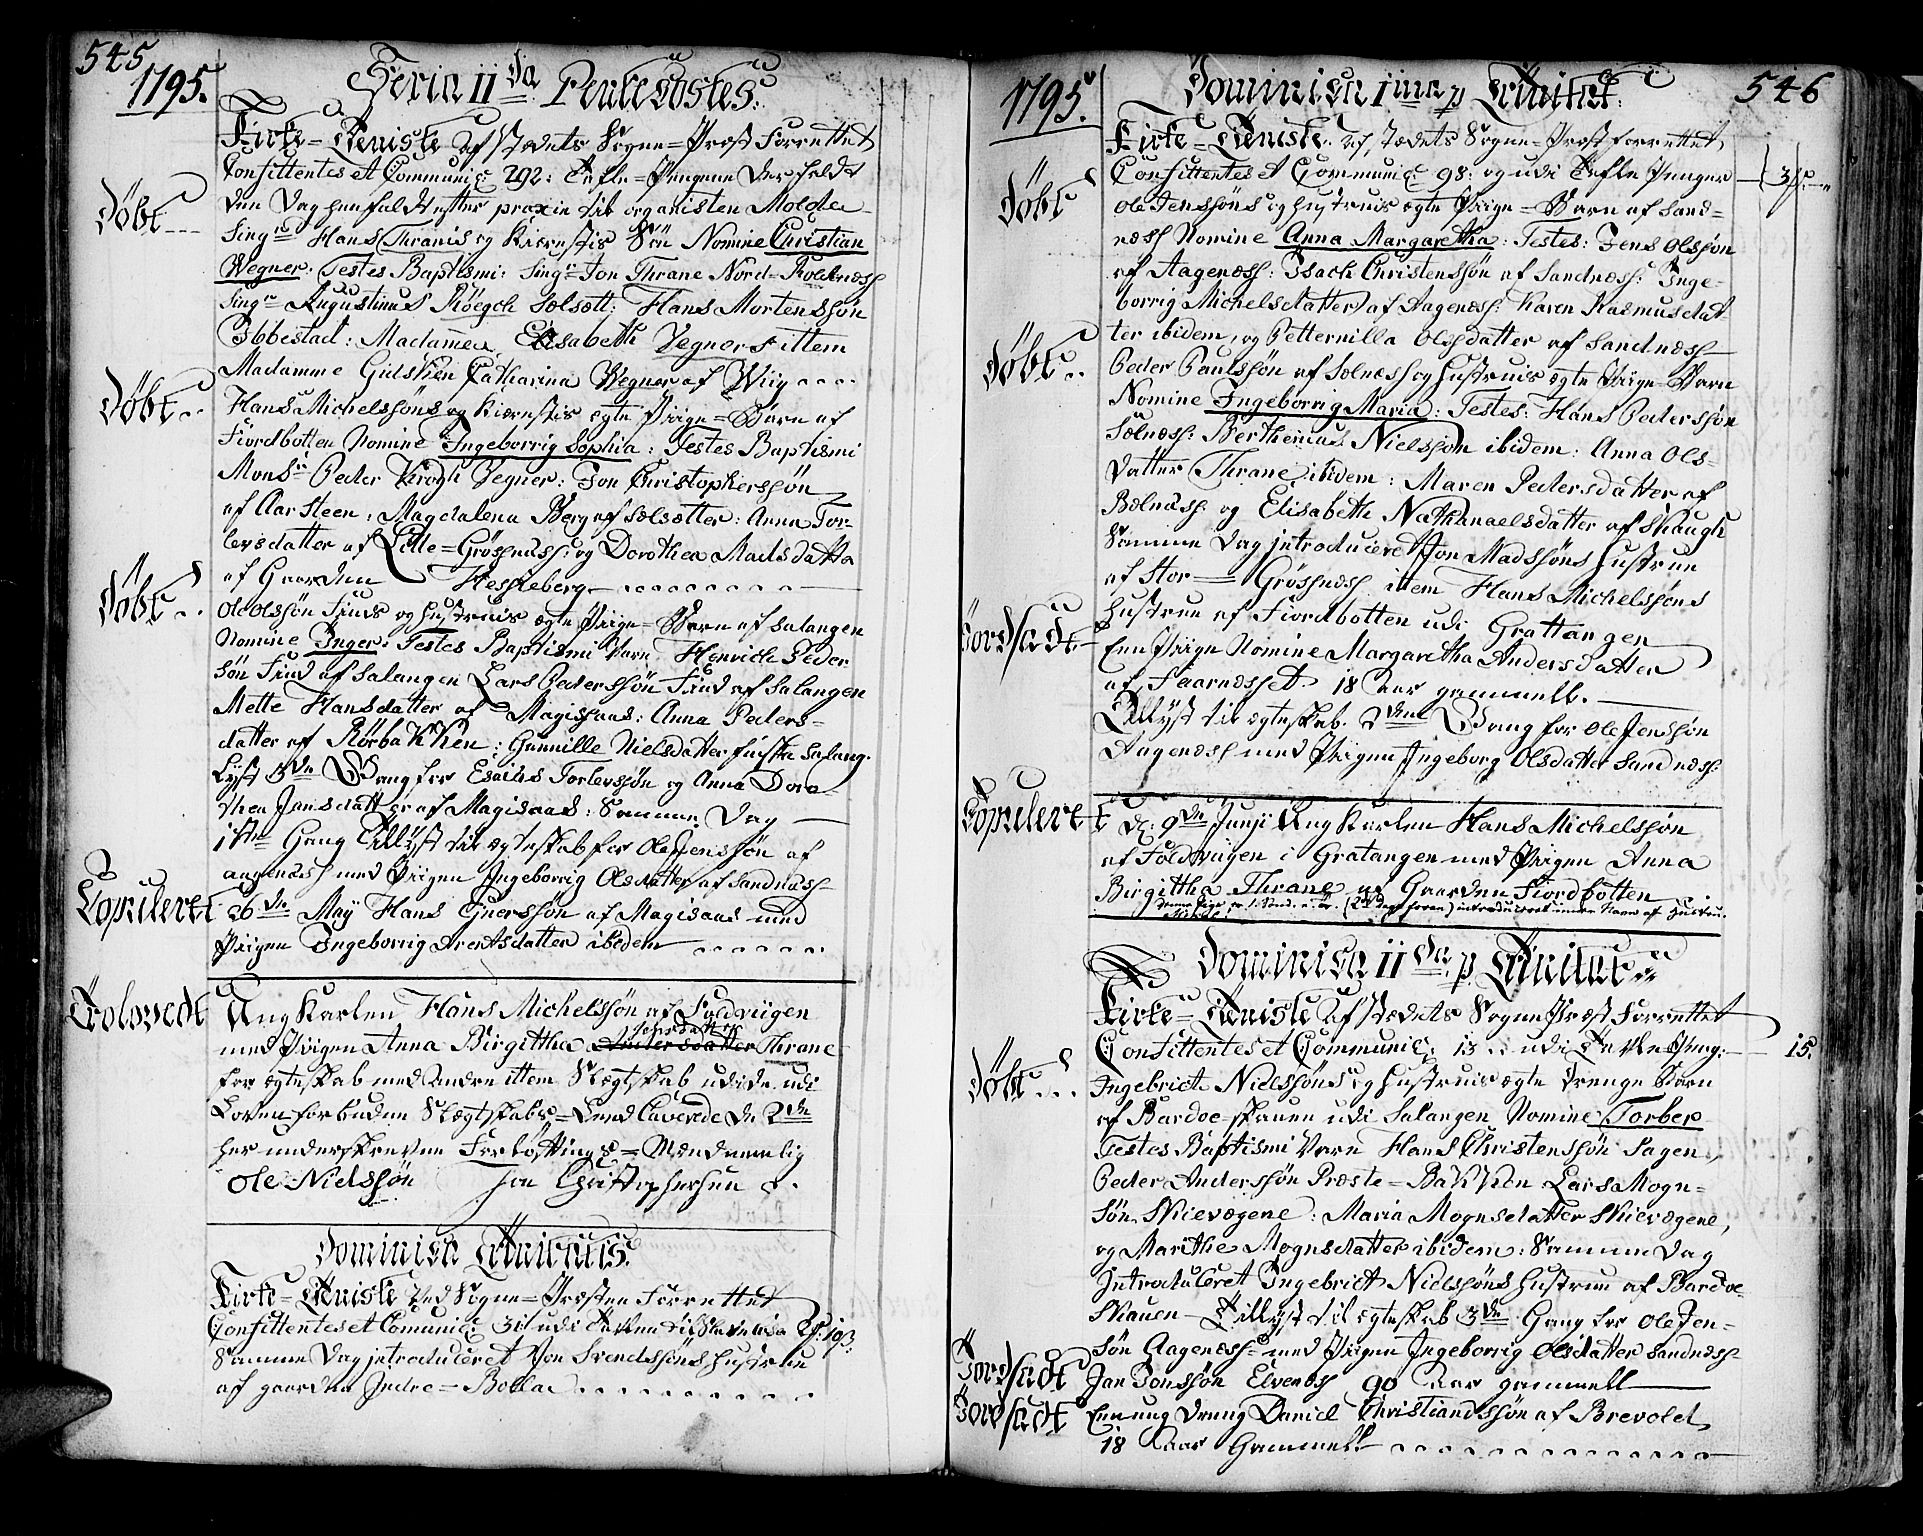 545
1795.
Feria II da Pentecostes.
Kirke=Tieniste af Stædets Sogne=Præst Forrettet
Confittentes et Communic: 292: Tafle=Pengene der faldt
den Dag henfaldt efter praxin til organisten Molde
Døbt
Sing.r Hans Thranis og Kiærestis Søn Nomine Christian
Wegner: Testes Baptismi: Sing.r Jon Thrane Nord=Rollnæss
Sing.r Augustinus Röegch Sælsætt: Hans Mortenssøn
Ibbestad: Madamea Elisabeth Vegner Fittem
Madamme Gidsken Catharina Wegner af Wiig
Døbt
Hans Michelssøns og Kiærestis ægte Piige=Barn af
Fiordbotten Nomine Ingeborrig Sophia: Testes Baptismi
Mons.r Peder Krogh Vegner: Jon Christopherssøn
af Aarsteen: Magdalena Berg af Sælsætter: Anna Tor-
levsdatter af Lille=Grössnæss: og Dorothea Madsdatter
af Gaarden Hessleberg
Døbt
Ole Olssøn Finds og Hustrues ægte Piige=Barn af Salangen
Nomine Inger: Testes Baptismi Varn Henrich Peder
søn Find af Salangen Lars Pederssøn Find af Salangen
Mette Hansdatter af Magisaas: Anna Peders-
datter af Rørbakken: Gunnille Nielsdatter Finske Salang.
Lyst 3de Gang for Esaias Torlevssøn og Anna Doro-
thea Jansdatter af Magisaas: Samme Dag
1ste Gang Tillyst til ægteskab for Ole Jenssøn af
aagenæss med Piigen Ingeborrig Olsdatter af Sandnæss
Copuleret
26de May Hans Ejnerssøn af Magisaas med
Piigen Ingeborrig Arentsdatter ibidem
Trolovedt
Ung Karlen Hans Michelssøn af Foldviigen
med Piigen Anna Birgitthe Andersdatter Jonsdatter Thrane
for ægteskab med Andre ittem Slægtskab udi de udi
Loven forbudne Slægtskabs=Leed Caverede de 2de
her underskrevne Forløftnings=Mænd nemlig
Ole Nielssøn Jon Christophersen
Dominica Trinitatis.
Kirke=Tieniste Ved Sogne=Præsten Forrettet
Confittentes et Comunic: 31 udi Taflen
Samme Dag introduceret Jon Svendssøns Hustrue
af gaarden Indre=Bolla
1795.
Dominica I ma p Trinitat:
546
Kirke=Tieniste af Stædets Sogne=Præst forrettet
Confittentes et Communic: 98: og udi Tafle Penger
Døbt
Ole Jenssøns og hustrues ægte Piige=Barn af Sand=
næss Nomine Anna Margaretha: Testes: Jens Olssøn
af Aagenæss: Isach Christenssøn af Sandnæss: Inge-
borrig Michelsdatter af Aagenæss: Karen Rasmusdat
ter ibidem, og Petternilla Olsdatter af Sandnæss
Døbt
Peder Paulssøn af Sølnæss og Hustrues ægte Piige=Barn
Nomine Ingeborrig Maria: Testes: Hans Pederssøn
Sølnæss: Berthenius Nielssøn ibidem: Anna Ols-
datter Thrane ibidem: Maren Pedersdatter af
Bølnæss og Elisabeth Nathanaelsdatter af Skaugh
Samme Dag introduceret Jon Madssøns Hustrue
af Stor=Grössnæss ittem Hans Michelssøns
Hustrue af Fiordbotten udi Grattangen
Jordfædt
Een Piige Nomine Margaretha Andersdatter
af Faarnæsset 18 Aar gammell.
Tillyst til ægteskab 2den Gang for Ole Jenssøn
Aagenæss med Piigen Ingeborg Olsdatter Sandnæss
Copuleret
D: 9de Junji Ung Karlen Hans Michelssøn
af Foldviigen i Gratangen med Piigen Anna
Birgittha Thrane af Gaarden Fiordbotten
Dominica II da p. Trinitat
Kirke=Tieniste af Stædets Sogne Præst Forrettet
Confittentes et Communic: 13 udi Taflen Peng: 15.
Døbt
Ingebrict Nielssøns og Hustrues ægte Drenge Barn
af Bardoe=skauen udi Salangen Nomine Torber
Testes Baptismi Varn Hans Christenssøn Sagen,
Peder Anderssøn Præste=Bakken Lars Mogn=
søn Skievægene: Maria Mognsdatter Skievægene,
og Marithe Mognsdatter ibidem: Samme Dag
Introduceret Ingebrict Nielssøns Hustrue af Bardoe
Skauen – Tillyst til ægteskab 3de Gang for Ole Jen=
søn Aagenæss med Piigen Ingeborrig Olsdatter Sandnæss
Jordfædt
Jan Jonssøn Elvenes 90 Aar gammell
Jordfædt
Een ung Dreng Daniel Christianssøn af Brevoldt
18 Aar Gammell